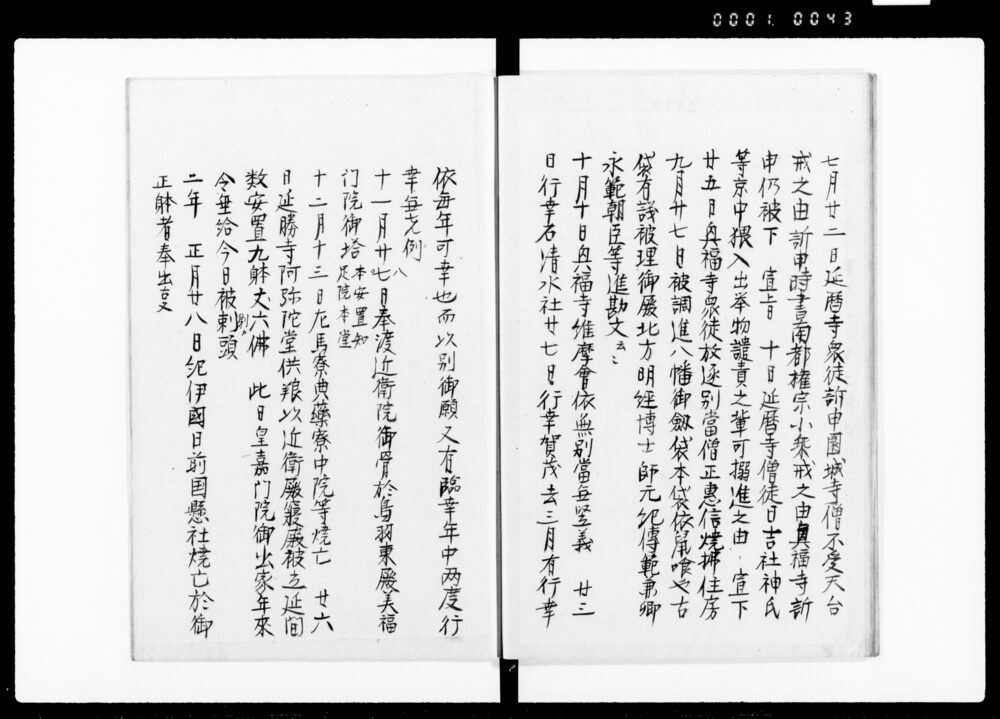 0001. 0043
七月廿二日延暦寺衆徒訴申園城寺僧不受天台
戒之由訴申時書南都権宗小乗戒之由興福寺訴
申仍被下 宣旨 十日延暦寺僧徒日吉社神民
等京中猥入出挙物譴責之輩可搦進之由 宣下
廿五日興福寺衆徒放逐別當僧正惠信焼拂住房
九月廿七日被調進八幡御劔袋本袋依鼠喰也古
袋有議被埋御殿北方明経博士師元紀傳範兼卿
永範朝臣等進勘文云〻
十月十日興福寺維摩會依無別當毎竪義 廿三
日行幸石清水社廿七日行幸賀茂去三月有行幸
依毎年可幸也而以別御願又有臨幸年中両度行
幸毎先例
十一月廿七日奉渡近衛院御骨於鳥羽東殿美福
八
門院御塔本安置知足院本堂
十二月十三日左馬寮典藥寮中院等焼亡 廿六
日延勝寺阿弥陀堂供粮以近衛殿寝殿被立延間
数安置九躰丈六佛 此日皇嘉門院御出家年來
令垂給今日被剃頭
二年 正月廿八日紀伊國日前国懸社焼亡於御
正躰者奉出更